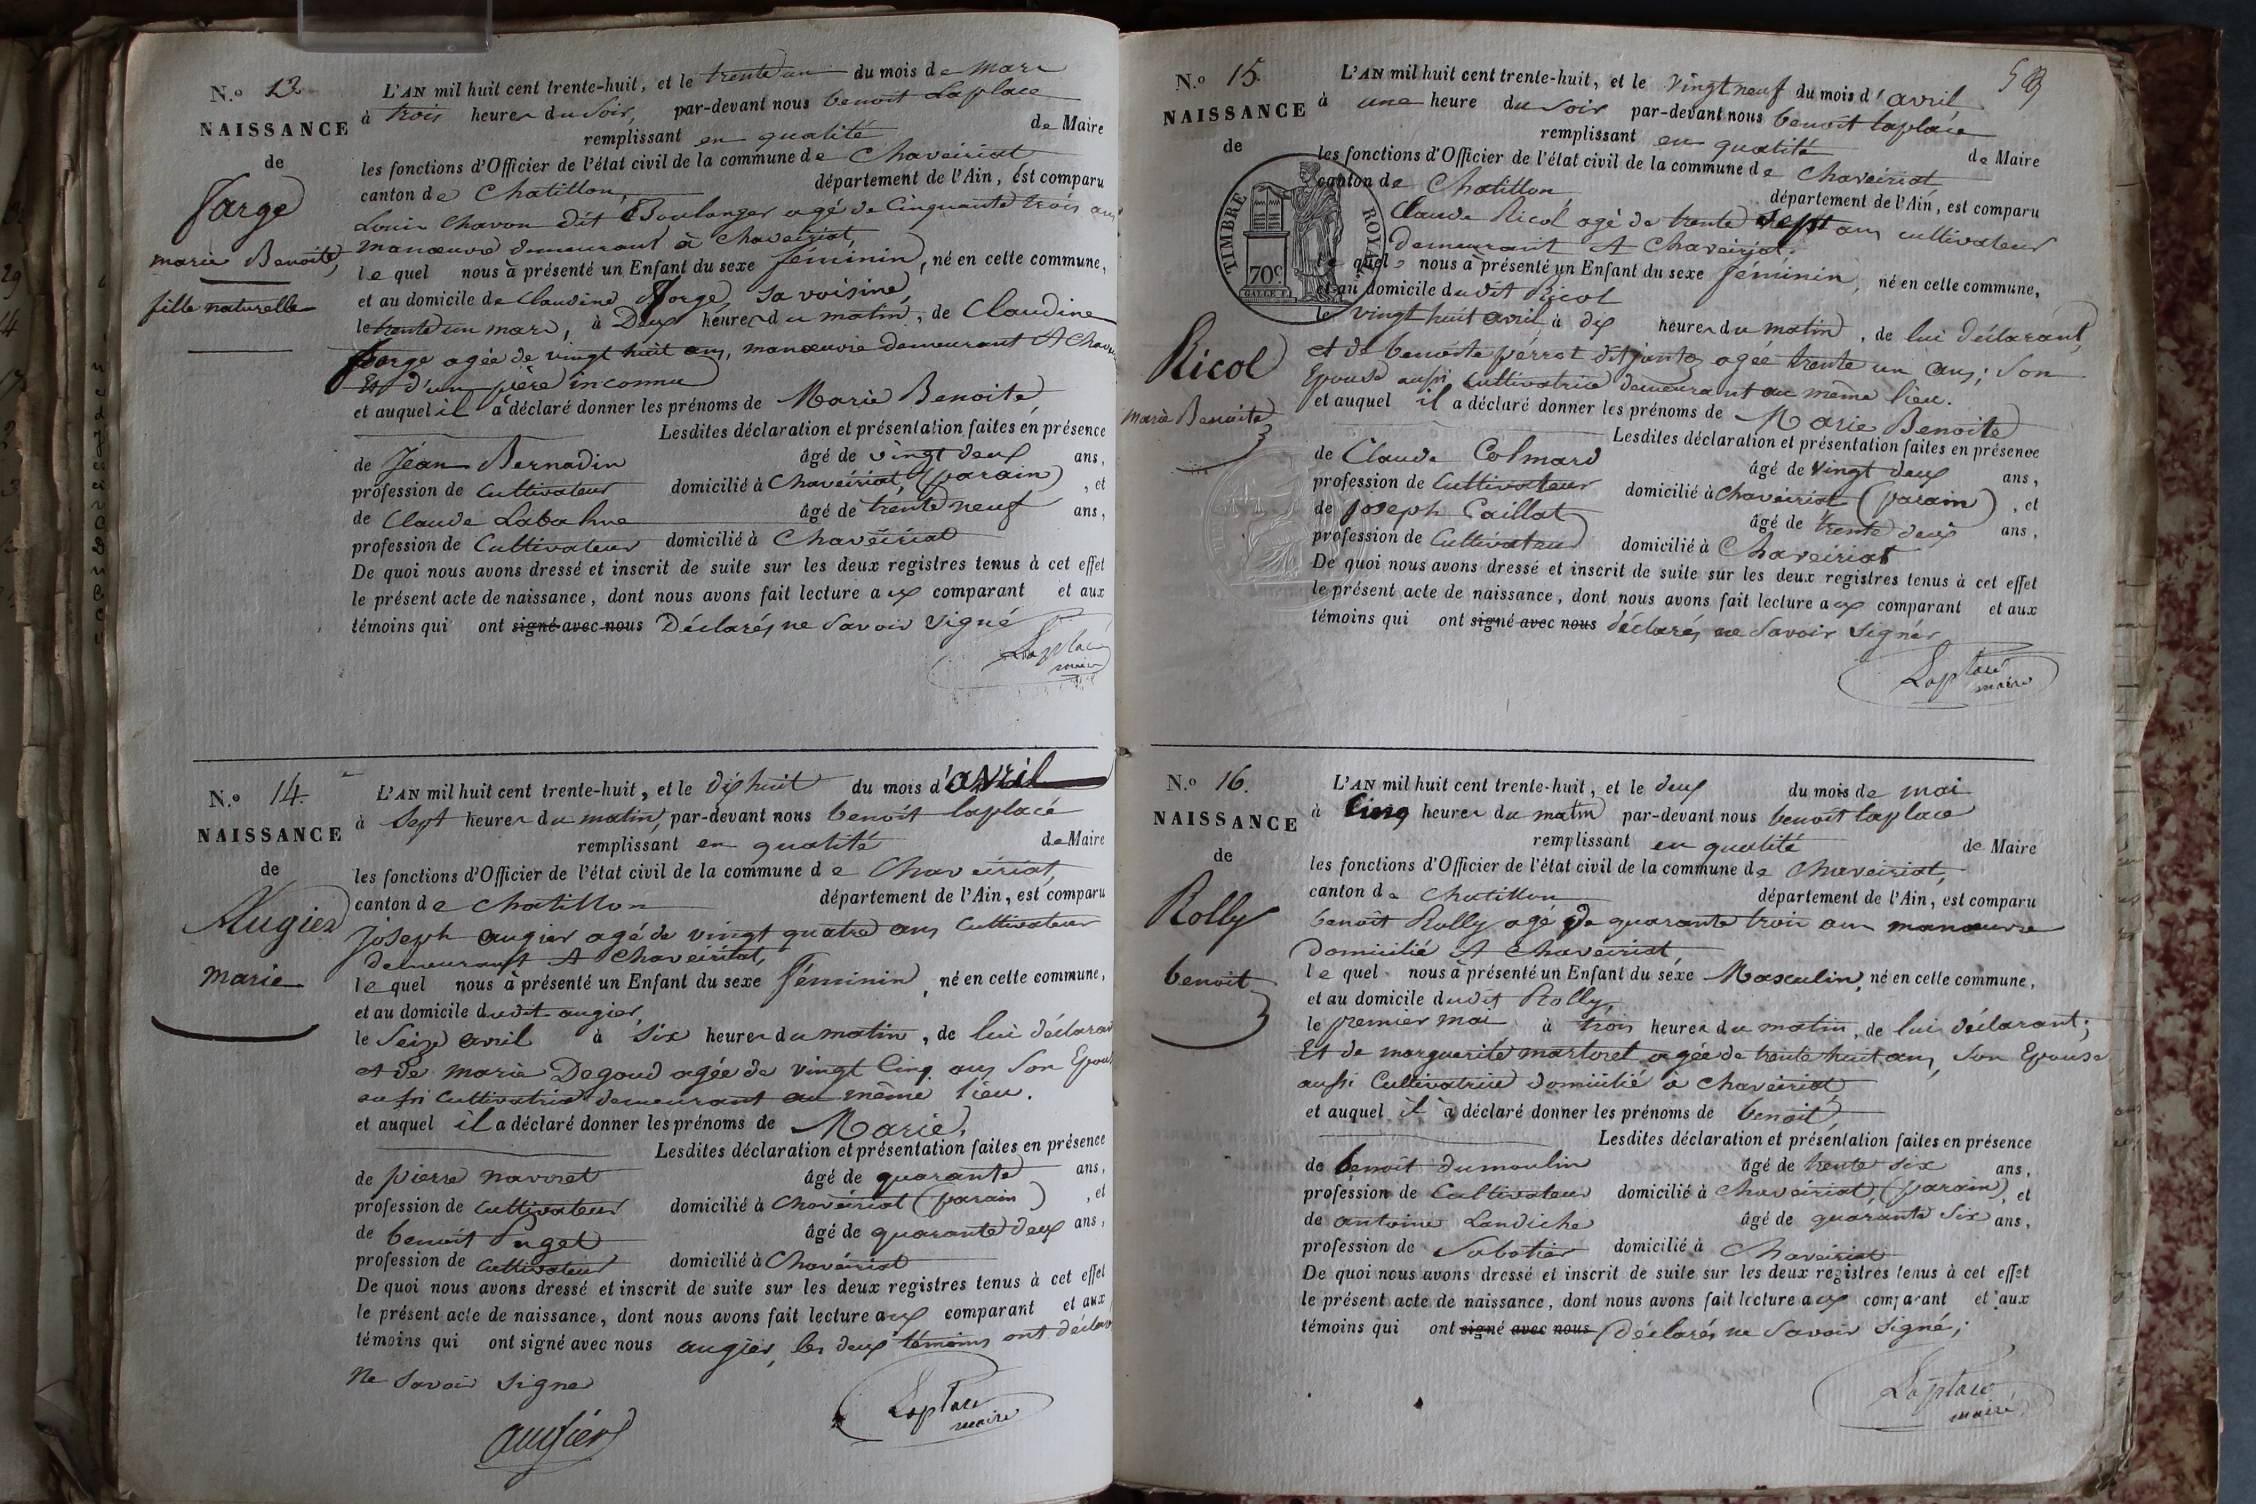 N.º 13
NAISSANCE
de
Farge
marie Benoite,
fille naturelle
L'AN mil huit cent trente-huit, et le trente un du mois de mars
à trois heures du soir, par-devant nous benoit Laplace
remplissant en qualité de Maire
les fonctions d'Officier de l'état civil de la commune de Chaveiriat
canton de Chatillon, département de l'Ain, est comparu
Louis Chavon dit Boulanger agé de Cinquante trois ans
manœuvre demeurant à Chaveiriat,
lequel nous à présenté un Enfant du sexe féminin, né en cette commune,
et au domicile de Claudine Farge, sa voisine
le trente un mars, à Deux heures du matin, de Claudine
farge agée de vingt huit ans, manœuvre demeurant A Chave
Et d'un père inconnu
et auquel il à déclaré donner les prénoms de Marie Benoite,
Lesdites déclaration et présentation faites en présence
de Jean Bernadin âgé de vingt deux ans,
profession de Cultivateur domicilié à Chaveiriat, (parain), et
de Claude Labahue âgé de trente neuf ans,
profession de Cultivateur domicilié à Chaveiriat
De quoi nous avons dressé et inscrit de suite sur les deux registres tenus à cet effet
le présent acte de naissance, dont nous avons fait lecture aux comparant et aux
témoins qui ont signé avec nous Déclarés ne savoir signé
Laplace
maire
N.º 14.
NAISSANCE
de
Augier
marie
L'AN mil huit cent trente-huit, et le dix huit du mois d'avril
à Sept heures du matin, par-devant nous benoit laplace
remplissant en qualité de Maire
les fonctions d'Officier de l'état civil de la commune de Chaveiriat,
canton de Chatillon département de l'Ain, est comparu
Joseph augier agé de vingt quatre ans Cultivateur
demeurant A Chaveiriat,
lequel nous à présenté un Enfant du sexe féminin, né en cette commune,
et au domicile dudit augier,
le Seize avril à six heures du matin, de lui déclarant
et de marie Degoud agée de vingt Cinq ans Son Epouse
aussi Cultivatrice demeurant au même lieu.
et auquel il a déclaré donner les prénoms de Marie,
Lesdites déclaration et présentation faites en présence
de pierre navoret âgé de quarante ans,
profession de Cultivateur domicilié à Chaveiriat (parain), et
de benoit Puget âgé de quarante deux ans,
profession de Cultivateur domicilié à Chaveiriat
De quoi nous avons dressé et inscrit de suite sur les deux registres tenus à cet effet
le présent acte de naissance, dont nous avons fait lecture aux comparant et aux
témoins qui ont signé avec nous augier, les deux témoins ont déclaré
ne savoir signer
augier
Laplace
maire
N.º 15.
NAISSANCE
de
TIMBRE ROYAL
70c
Ricol
marie Benoite
L'AN mil huit cent trente-huit, et le vingt neuf du mois d'avril
à une heure du soir par-devant nous benoit laplace
remplissant en qualité de Maire
les fonctions d'Officier de l'état civil de la commune de Chaveiriat,
canton de Chatillon, département de l'Ain, est comparu
Claude Ricol agé de trente sept ans cultivateur
demeurant A Chaveiriat,
lequel nous à présenté un Enfant du sexe féminin, né en cette commune,
et au domicile dudit Ricol
le vingt huit avril à dix heures du matin, de lui déclarant,
et de benoite perrot dit agée trente un ans; Son
Epouse aussi Cultivatrice demeurant au même lieu.
et auquel il a déclaré donner les prénoms de Marie Benoite
Lesdites déclaration et présentation faites en présence
de Claude Colmard âgé de vingt deux ans,
profession de Cultivateur domicilié à Chaveiriat (parain), et
de Joseph Caillat âgé de trente deux ans,
profession de Cultivateur domicilié à Chaveiriat
De quoi nous avons dressé et inscrit de suite sur les deux registres tenus à cet effet
le présent acte de naissance, dont nous avons fait lecture aux comparant et aux
témoins qui ont signé avec nous déclarés ne savoir signer
Laplace
maire
N.º 16.
NAISSANCE
de
Rolly
benoit
L'AN mil huit cent trente-huit, et le deux du mois de mai
à Cinq heures du matin par-devant nous benoit laplace
remplissant en qualité de Maire
les fonctions d'Officier de l'état civil de la commune de Chaveiriat,
canton de Chatillon département de l'Ain, est comparu
benoit Rolly agé de quarante trois ans manœuvre
domicilié A Chaveiriat,
lequel nous à présenté un Enfant du sexe Masculin, né en cette commune,
et au domicile dudit Rolly,
le premier mai à trois heures du matin, de lui déclarant;
Et de marguerite martoret agée de trente huit ans, Son Epouse
aussi Cultivatrice domicilié à Chaveiriat
et auquel il à déclaré donner les prénoms de benoit,
Lesdites déclaration et présentation faites en présence
de benoit dumoulin âgé de trente six ans,
profession de Cultivateur domicilié à Chaveiriat, (parain), et
de antoine Landiche âgé de quarante six ans,
profession de Sabotier domicilié à Chaveiriat
De quoi nous avons dressé et inscrit de suite sur les deux registres tenus à cet effet
le présent acte de naissance, dont nous avons fait lecture aux comparant et aux
témoins qui ont signé avec nous déclarés ne savoir signé;
Laplace
maire